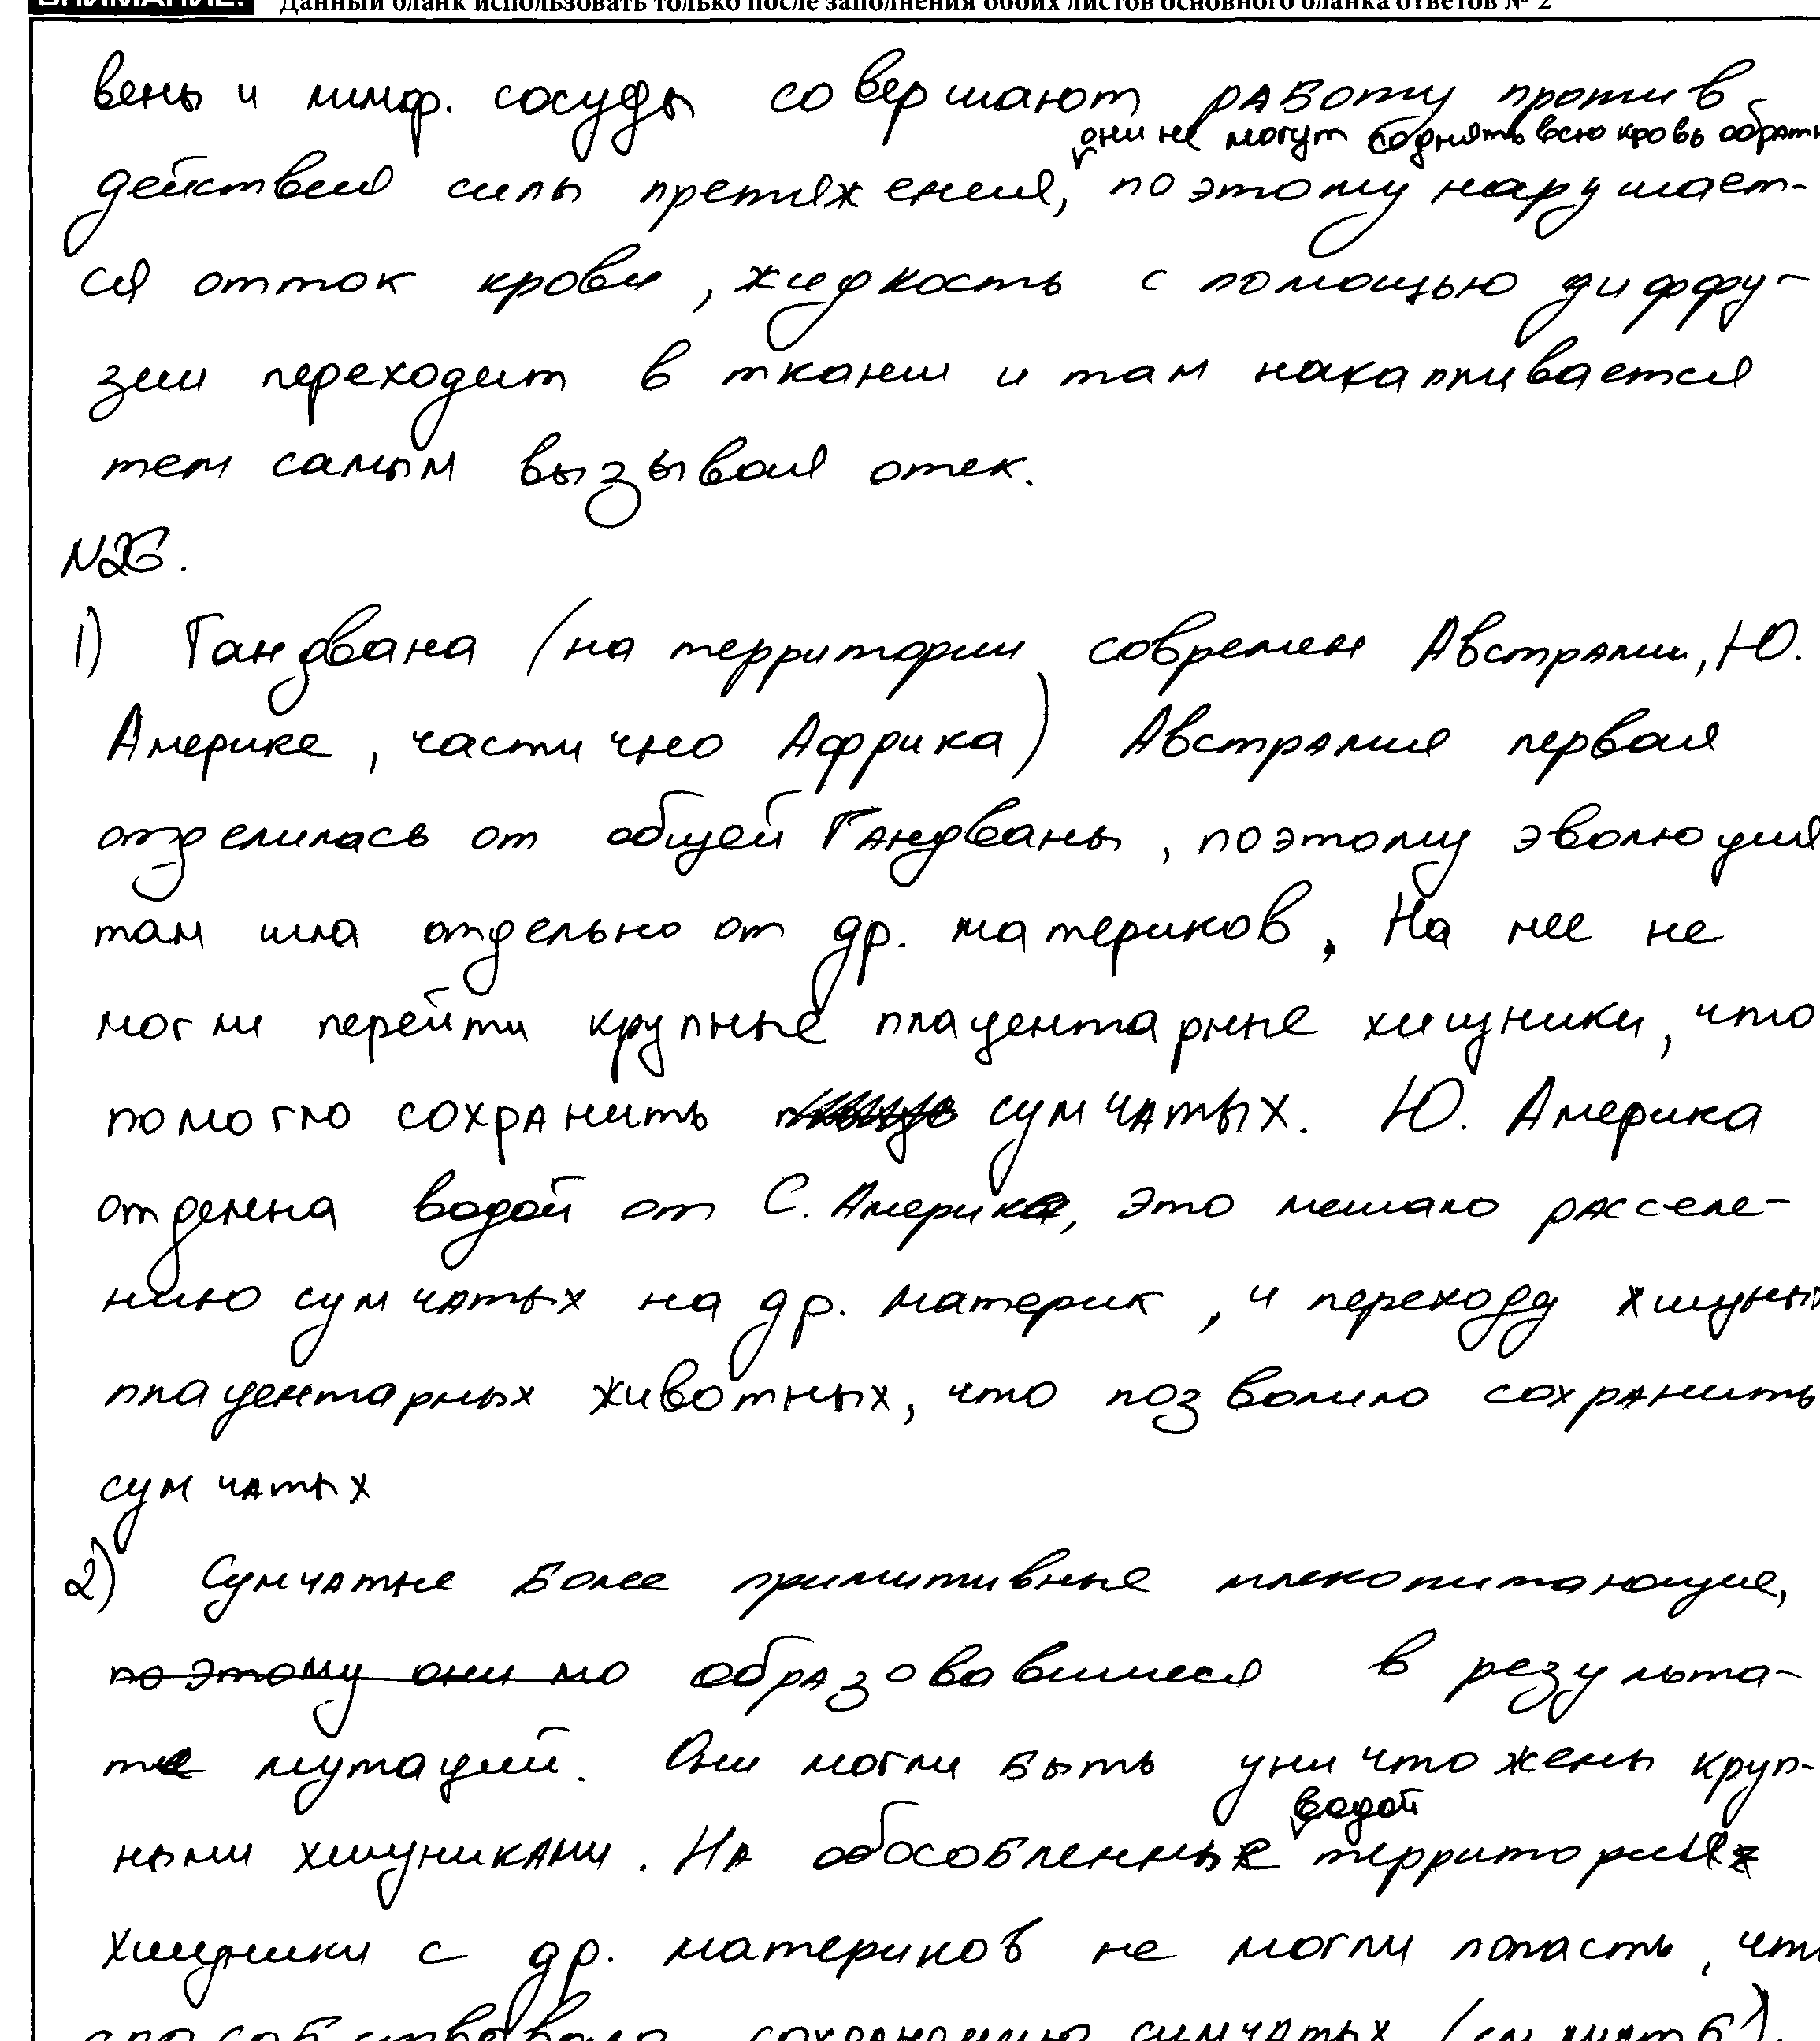 ВНИМАНИЕ! Данный бланк использовать только после заполнения обоих листов основного бланка ответов № 2
вены и лимф. сосуды совершают работу против
они не могут поднять всю кровь обратн
действия силы притяжения, поэтому нарушает-
ся отток крови, жидкость с помощью диффу-
зии переходит в ткани и там накапливается
тем самым вызывая отек.
№26.
1) Гандвана (на территории современ Австралии, Ю.
Америке, частично Африка) Австралия первая
отделилась от общей Гандваны, поэтому эволюция
там шла отдельно от др. материков. На нее не
могли перейти крупные плацентарные хищники, что
помогло сохранить сумчатых. Ю. Америка
отделена водой от С. Америка, это мешало расселе-
нию сумчатых на др. материк, и переходу хищных
плацентарных животных, что позволило сохранить
сумчатых
2) Сумчатые более примитивные млекопитающие,
поэтому они мо образовавшиеся в результа-
те мутаций. Они могли быть уничтожены круп-
водой
ными хищниками. На обособленные территориях
хищники с др. материков не могли попасть, что
способствовало сохранению сумчатых (см лист 6).